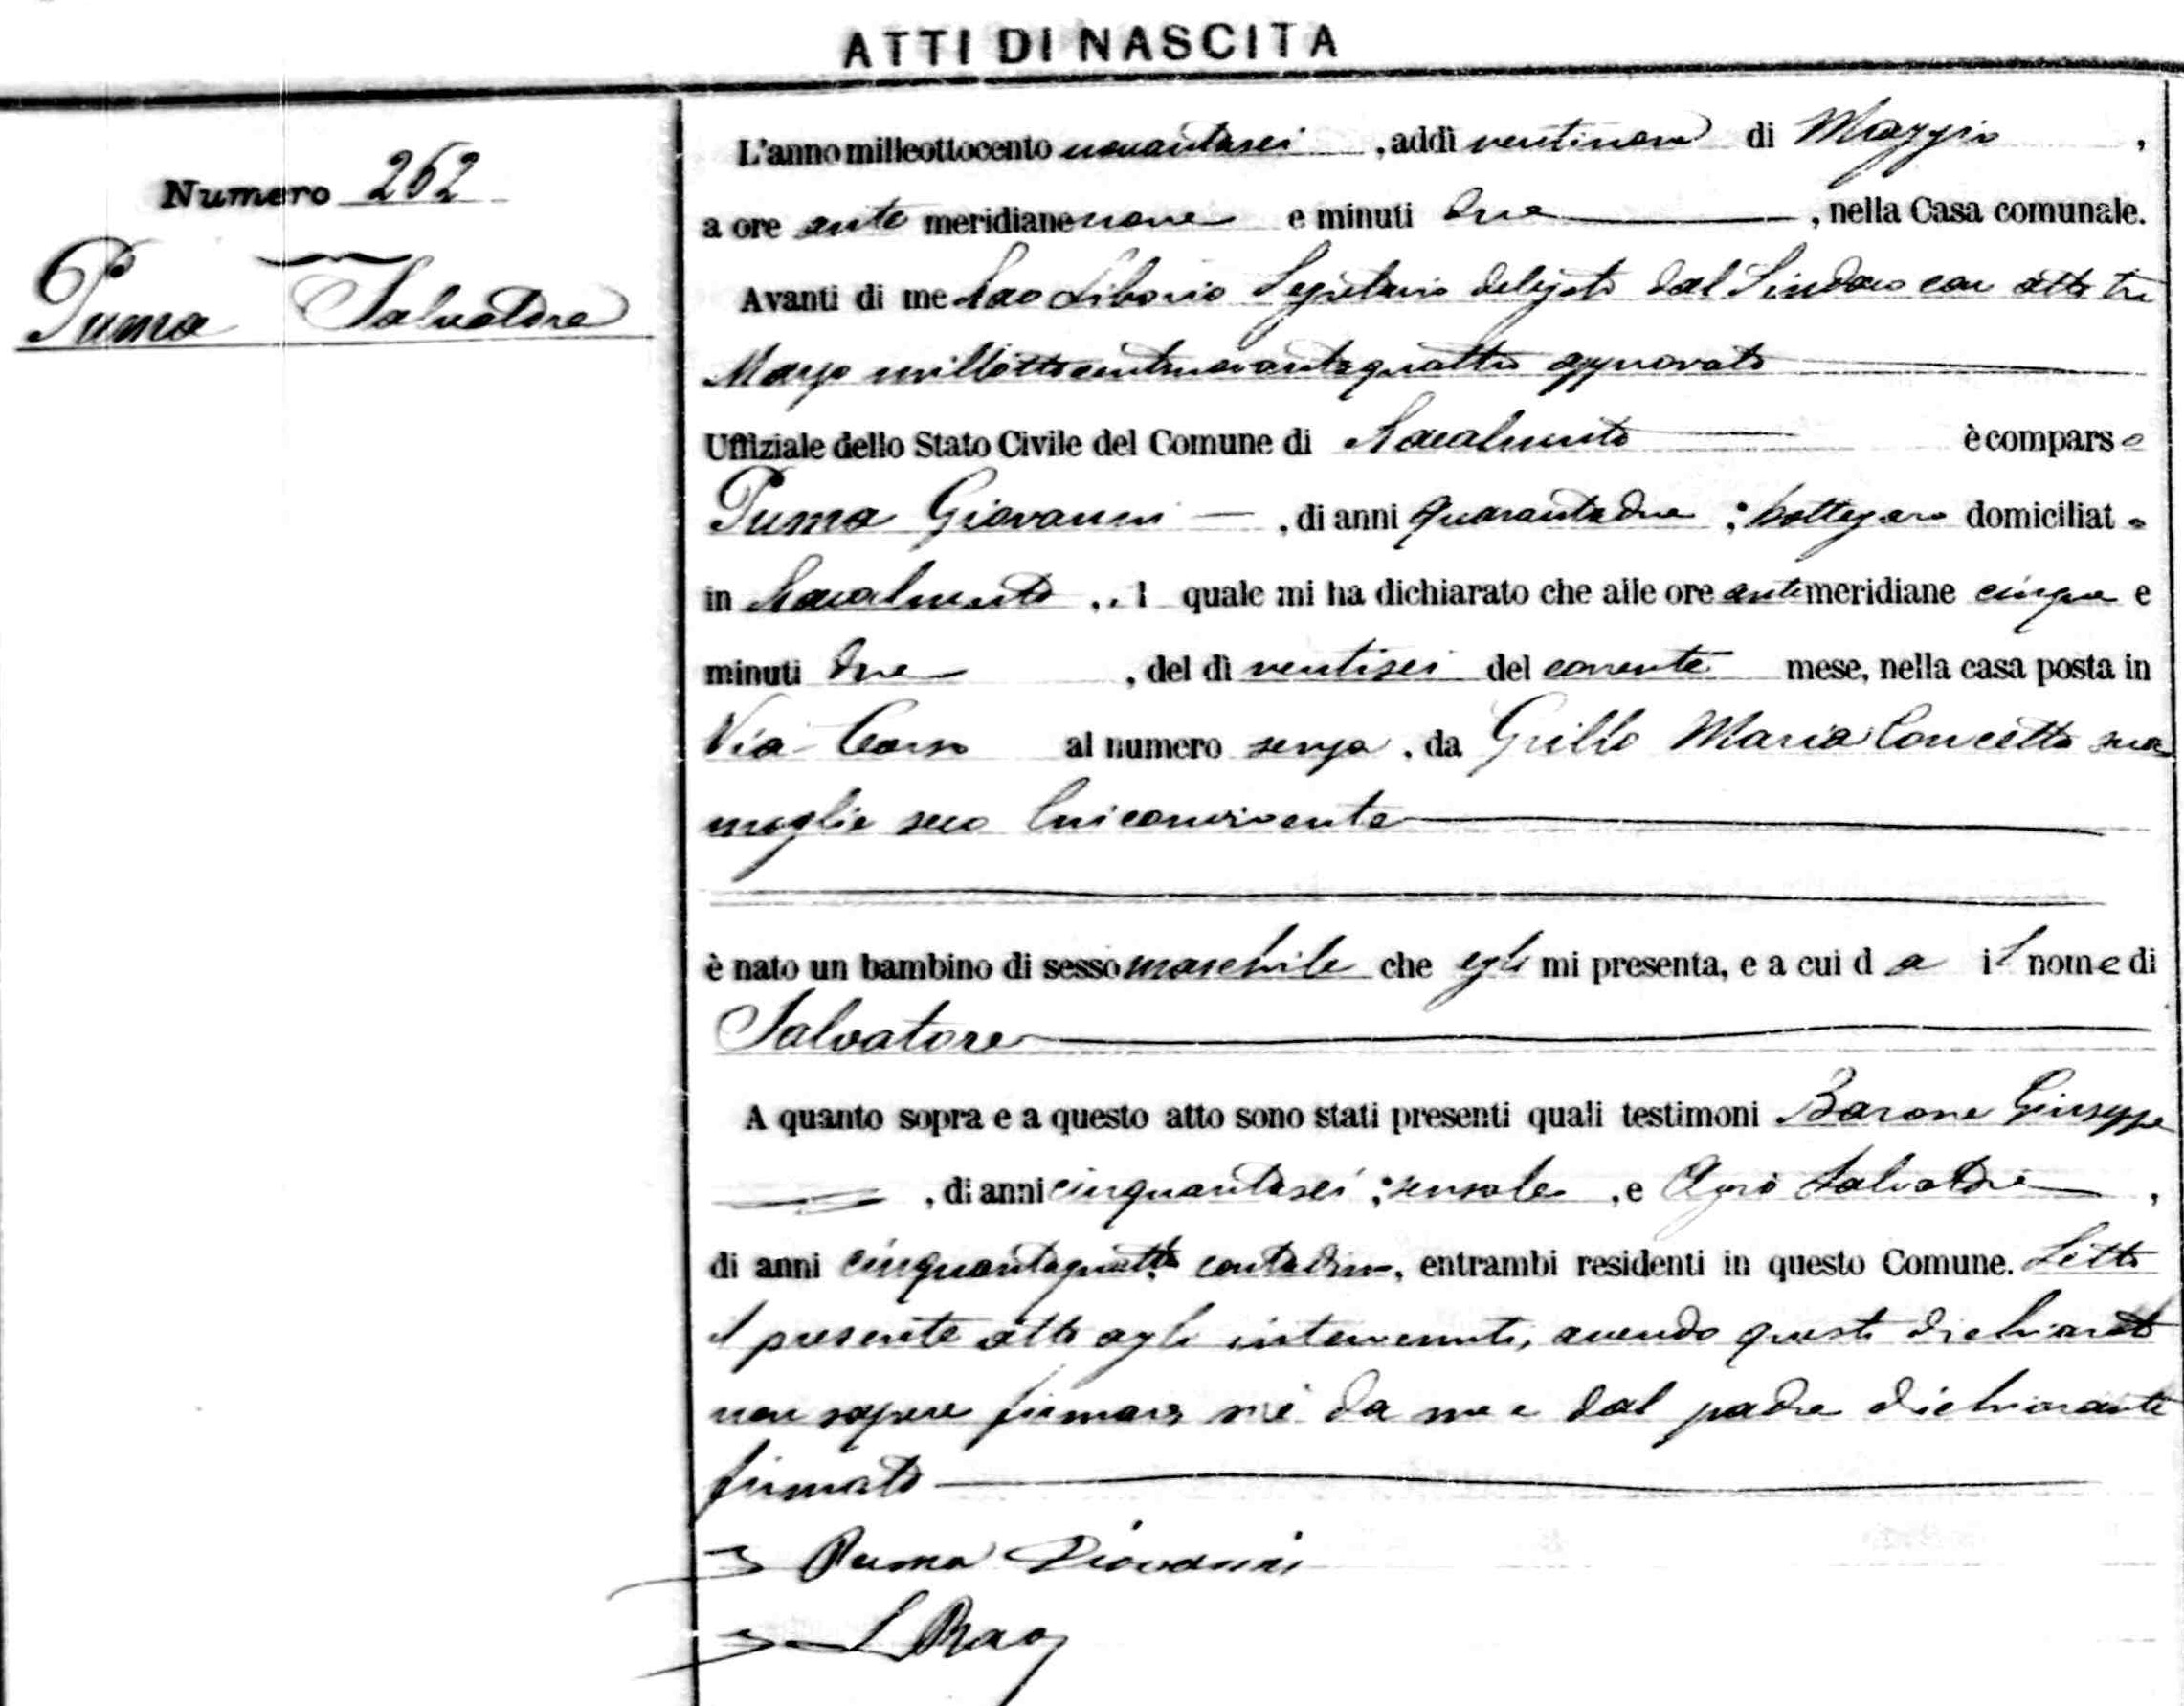 ATTI DI NASCITA
Numero 262
Puma Salvatore
L'anno milleottocento novantasei, addì ventinove di Maggio,
a ore ante meridiane nove e minuti due, nella Casa comunale.
Avanti di me Rao Liborio Segretario delegato dal Sindaco con atto tre
Marzo millottocentonovantaquattro approvato
Uffiziale dello Stato Civile del Comune di Racalmuto è comparso
Puma Giovanni, di anni quarantadue; bottegaro domiciliato
in Racalmuto, ..l quale mi ha dichiarato che alle ore antimeridiane cinque e
minuti due, del dì ventisei del corrente mese, nella casa posta in
Via Corso al numero senza, da Grillo Maria Concetta sua
moglie seco lui convivente
è nato un bambino di sesso maschile che egli mi presenta, e a cui da il nome di
Salvatore
A quanto sopra e a questo atto sono stati presenti quali testimoni Barone Giuseppe
, di anni cinquantasei; sensale, e Agrò Salvatore,
di anni cinquantaquattro contadino, entrambi residenti in questo Comune. Letto
il presente atto agli intervenuti, avendo questi dichiarato
non sapere firmare, si è da me e dal padre dichiarante
firmato
Puma Giovanni
L Rao